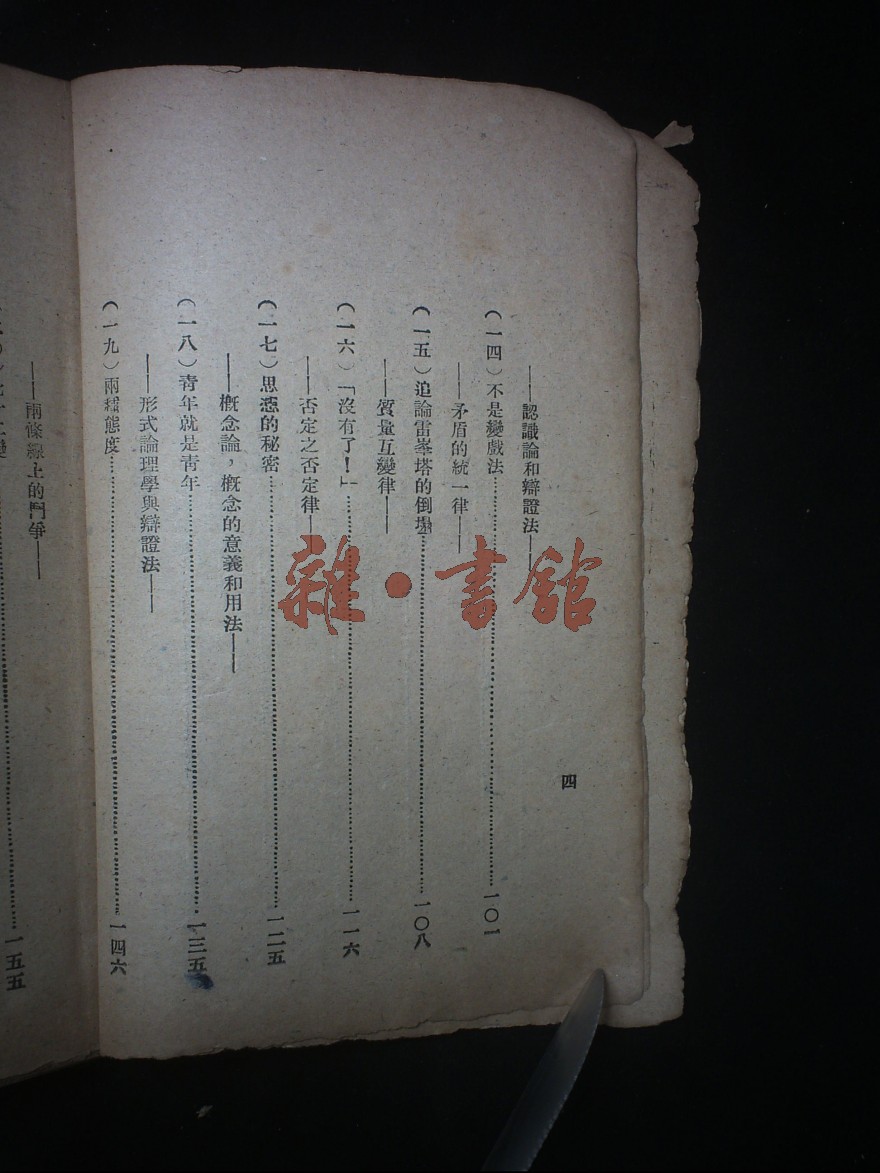 四
——認識論和辯證法——
(一四)不是變戲法……一〇一
——矛盾的統一律——
(一五)追論雷峯塔的倒塌……一〇八
——質量互變律——
(一六)「沒有了!」……一一六
——否定之否定律——
(一七)思想的秘密……一二五
——概念論,概念的意義和用法——
(一八)青年就是青年……一三五
——形式論理學與辯證法——
(一九)兩種態度……一四六
——兩條線上的鬥爭——
一五五
雜·書館